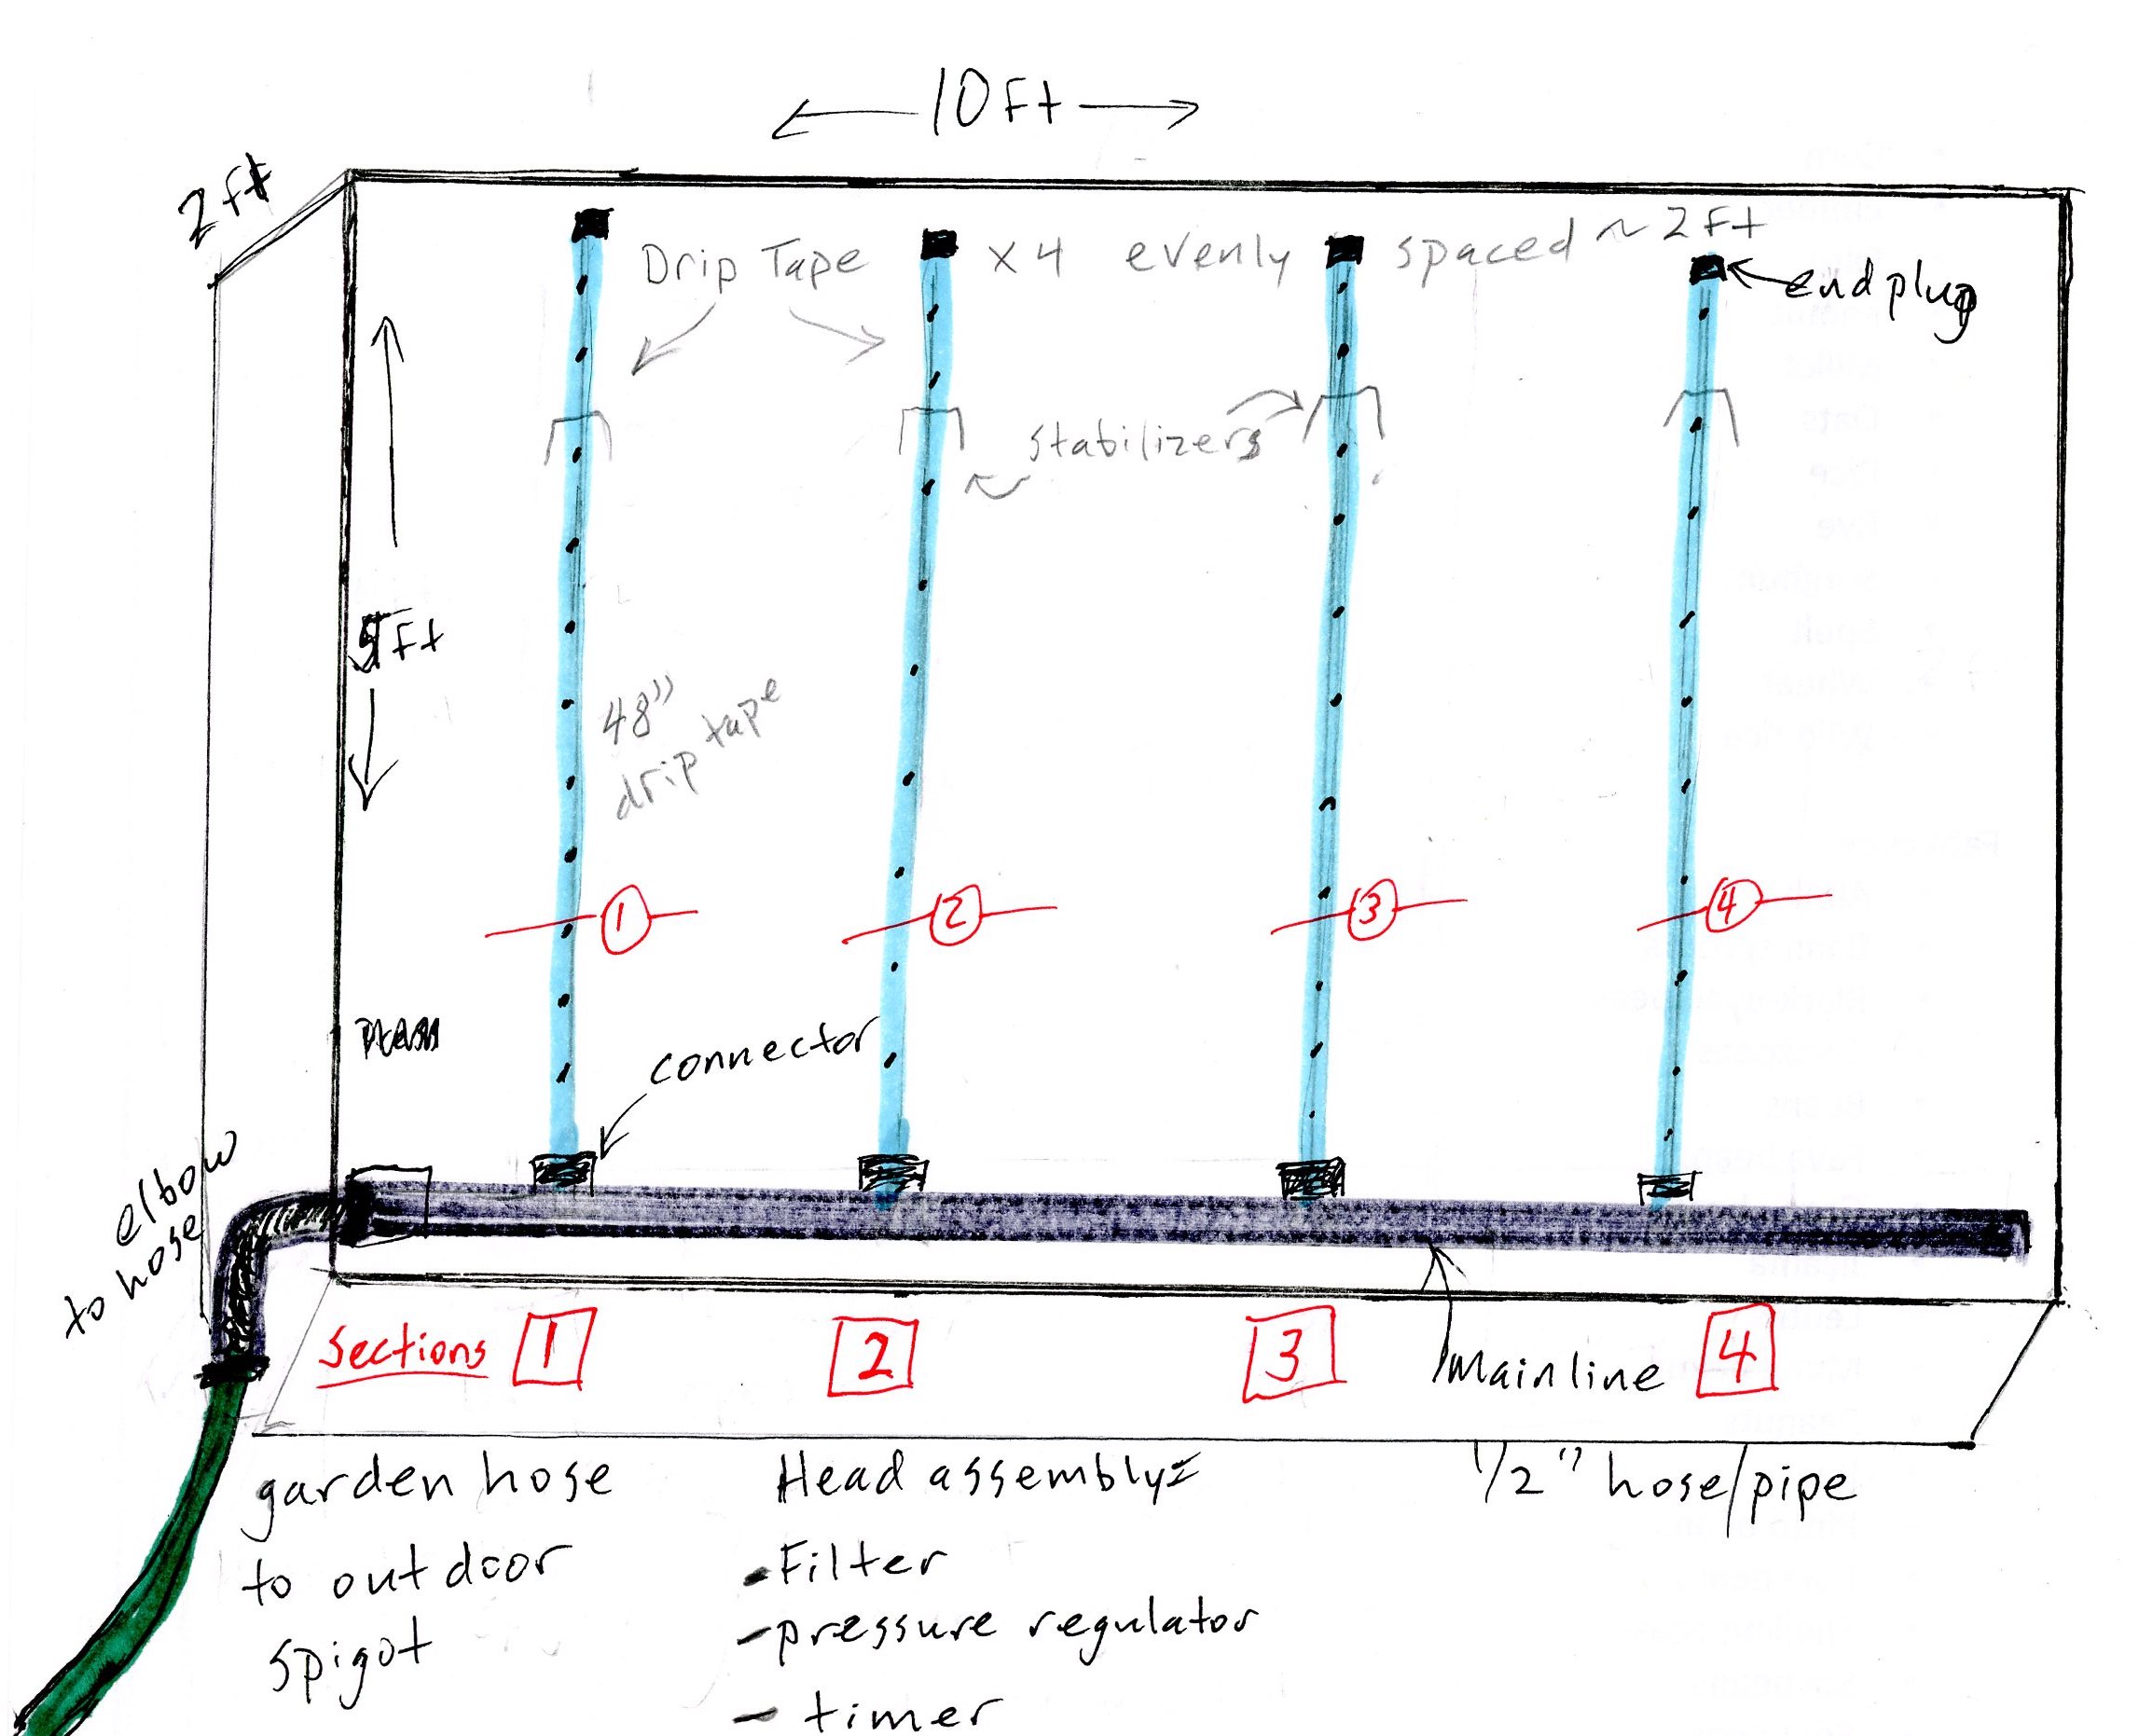 10Ft
2ft
Drip Tape x 4 evenly spaced ~ 2Ft
end plug
stabilizers
5Ft
48"
drip tape
1 2 3 4
connector
elbow
to hose
Sections 1 2 3 4
Mainline
garden hose
to outdoor
spigot
Head assembly:
- Filter
- pressure regulator
- timer
1/2" hose/pipe